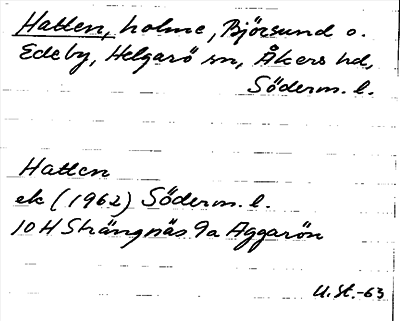 Hatten, holme, Björsund o.
Edeby, Helgarö sn, Åkers hd,
Söderm. l.
Hatten
ek (1962) Söderm. l.
10H Strängnäs 9a Aggarön
U.St.-63